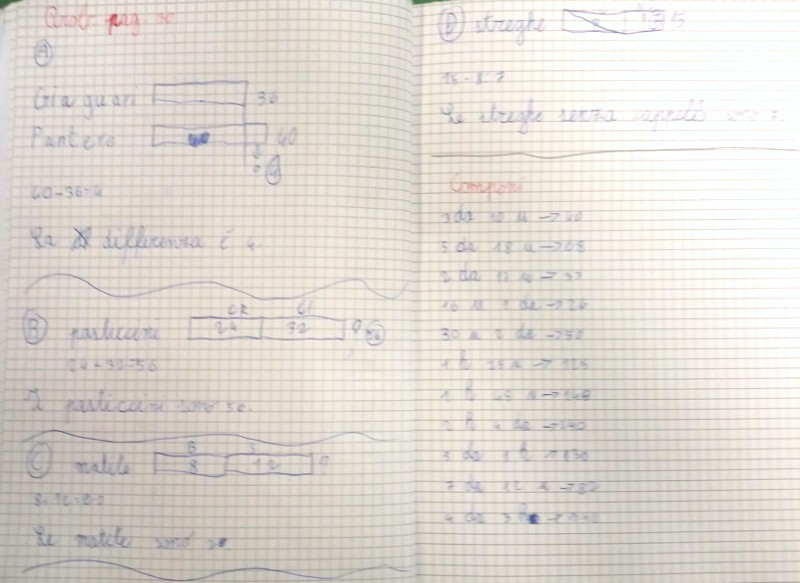 Prob. pag 50
A
Giaguari 36
Pantere 40
? 4
40-36=4
La differenza è 4.
B pasticcini CR 24 CI 32 ? 56
24+32=56
I pasticcini sono 56.
C matite B 8 S 12 ?
8+12=20
Le matite sono 20.
D streghe 8 15
15-8=7
Le streghe senza cappello sono 7.
Componi
3 da 10 u → 40
5 da 18 u → 68
2 da 17 u → 37
16 u 1 da → 26
30 u 2 da → 50
1 h 25 u → 125
1 h 48 u → 148
2 h 4 da → 240
3 da 1 h → 130
7 da 12 u → 82
4 da 3 h → 340